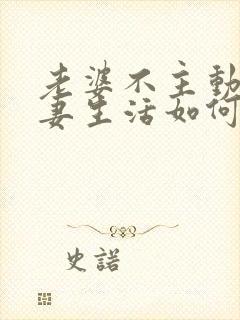 老婆不主動
妻生活如何
史諾